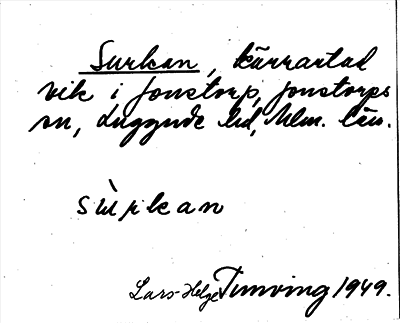 Surkan, kärrartad
vik i Jonstorp, Jonstorps
sn, Luggude hd, Mlm. län.
sùrkan
Lars-Helge Tunving 1949.